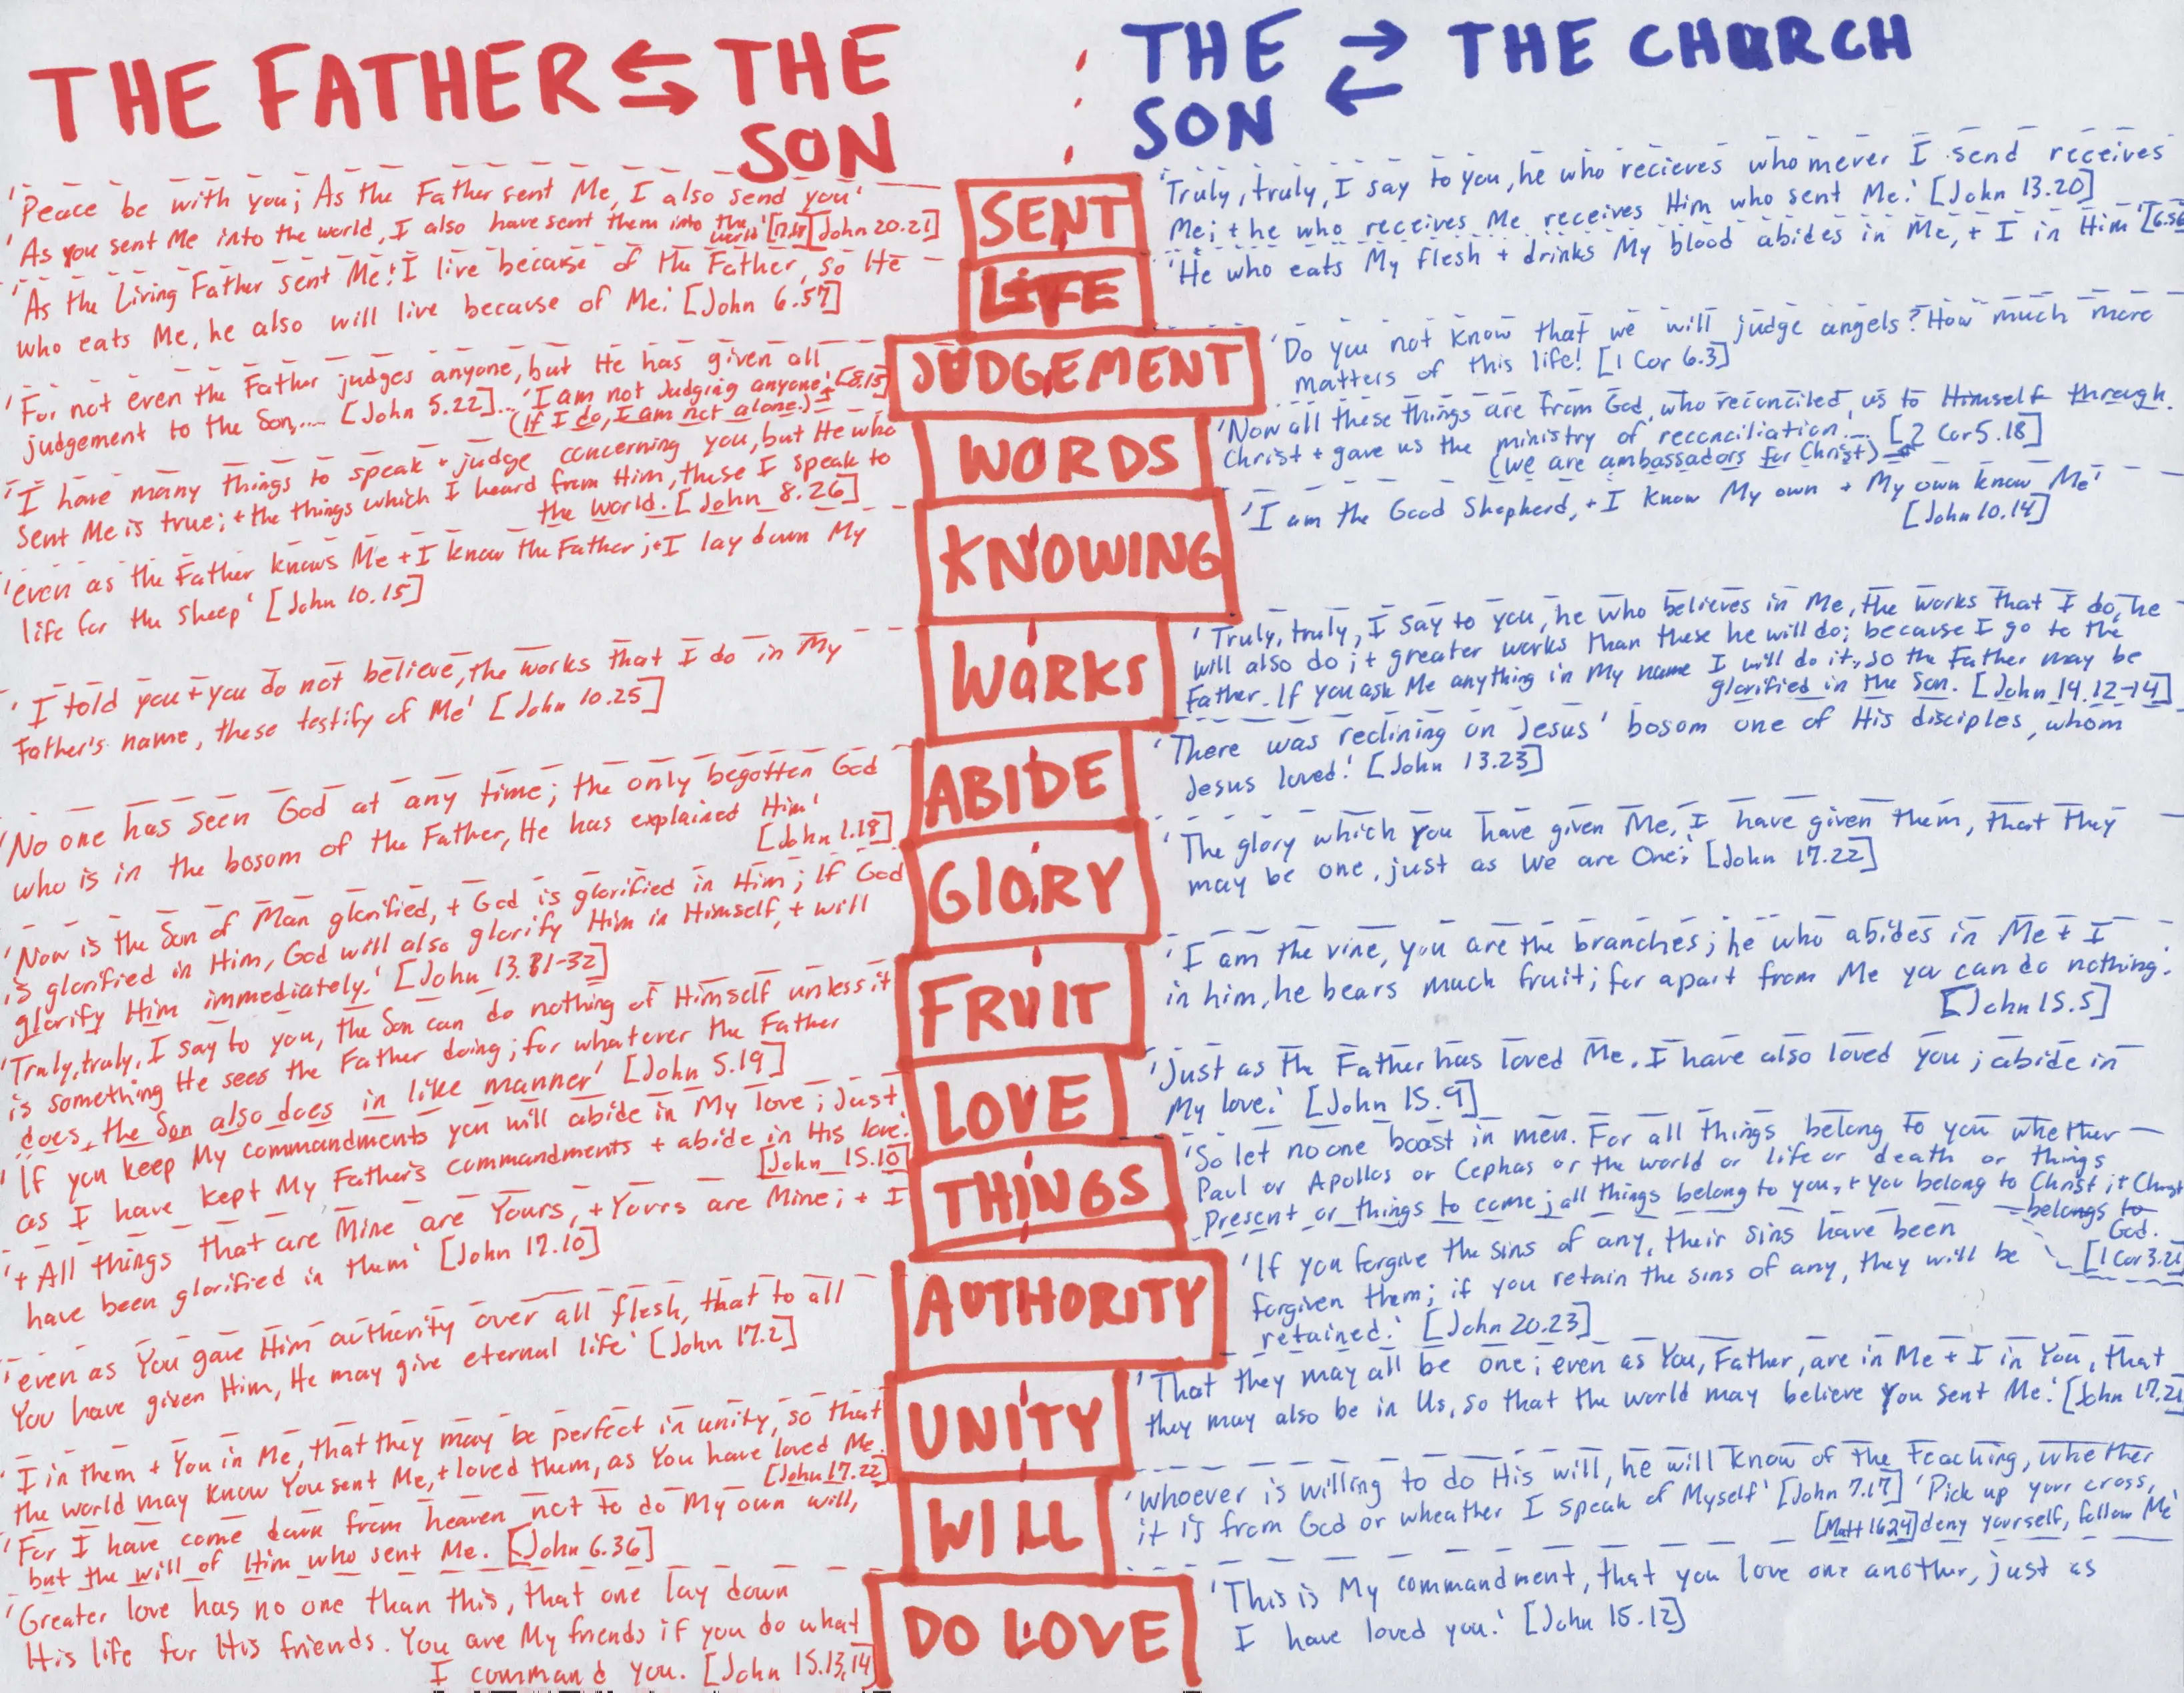 THE FATHER ⇆ THE
SON
'Peace be with you; As the Father sent Me, I also send you'
'As you sent Me into the world, I also have sent them into the world' [17.18] [John 20.21]
'As the Living Father sent Me + I live because of the Father, so He
who eats Me, he also will live because of Me.' [John 6.57]
'For not even the Father judges anyone, but He has given all
judgement to the Son,.... [John 5.22]... 'I am not Judging anyone' [8.15]
(If I do, I am not alone.)
'I have many things to speak + judge concerning you, but He who
sent Me is true; + the things which I heard from Him, these I speak to
the world. [John 8.26]
'even as the Father knows Me + I know the Father; + I lay down My
life for the sheep' [John 10.15]
'I told you + you do not believe, the works that I do in My
Father's name, these testify of Me' [John 10.25]
'No one has seen God at any time; the only begotten God
who is in the bosom of the Father, He has explained Him'
[John 1.18]
'Now is the Son of Man glorified, + God is glorified in Him; If God
is glorified in Him, God will also glorify Him in Himself, + will
glorify Him immediately.' [John 13.31-32]
'Truly, truly, I say to you, the Son can do nothing of Himself unless it
is something He sees the Father doing; for whatever the Father
does, the Son also does in like manner' [John 5.19]
'If you keep My commandments you will abide in My love; Just
as I have kept My Father's commandments + abide in His love.'
[John 15.10]
'+ All things that are Mine are Yours, + Yours are Mine; + I
have been glorified in them' [John 17.10]
'even as You gave Him authority over all flesh, that to all
You have given Him, He may give eternal life' [John 17.2]
'I in them + You in Me, that they may be perfect in unity, so that
the world may know You sent Me, + loved them, as You have loved Me.
[John 17.22]
'For I have come down from heaven not to do My own will,
but the will of Him who sent Me. [John 6.36]
'Greater love has no one than this, that one lay down
His life for His friends. You are My friends if you do what
I command you. [John 15.13,14]
SENT
LIFE
JUDGEMENT
WORDS
KNOWING
WORKS
ABIDE
GLORY
FRUIT
LOVE
THINGS
AUTHORITY
UNITY
WILL
DO LOVE
THE ⇄ THE CHURCH
SON
'Truly, truly, I say to you, he who recieves whomever I send receives
Me; + he who receives Me receives Him who sent Me.' [John 13.20]
'He who eats My flesh + drinks My blood abides in Me, + I in Him' [6.56
'Do you not know that we will judge angels? How much more
matters of this life! [1 Cor 6.3]
'Now all these things are from God, who reconciled us to Himself through
Christ + gave us the ministry of reconciliation.... [2 Cor 5.18]
(We are ambassadors for Christ)
'I am the Good Shepherd, + I know My own + My own know Me'
[John 10.14]
'Truly, truly, I say to you, he who believes in Me, the works that I do, he
will also do; + greater works than these he will do; because I go to the
Father. If you ask Me anything in My name I will do it, so the Father may be
glorified in the Son. [John 14.12-14]
'There was reclining on Jesus' bosom one of His disciples, whom
Jesus loved.' [John 13.23]
'The glory which you have given Me, I have given them, that they
may be one, just as We are One;' [John 17.22]
'I am the vine, you are the branches; he who abides in Me + I
in him, he bears much fruit; for apart from Me you can do nothing.'
[John 15.5]
'Just as the Father has loved Me, I have also loved you; abide in
My love.' [John 15.9]
'So let no one boast in men. For all things belong to you whether
Paul or Apollos or Cephas or the world or life or death or things
Present or things to come; all things belong to you, + you belong to Christ; + Christ
belongs to
God.
[1 Cor 3.21
'If you forgive the sins of any, their sins have been
forgiven them; if you retain the sins of any, they will be
retained.' [John 20.23]
'That they may all be one; even as You, Father, are in Me + I in You, that
they may also be in Us, so that the world may believe You sent Me.' [John 17.21
'Whoever is willing to do His will, he will know of the teaching, whether
it is from God or wheather I speak of Myself' [John 7.17] 'Pick up your cross,
[Matt 16.24] deny yourself, follow Me'
'This is My commandment, that you love one another, just as
I have loved you.' [John 15.12]